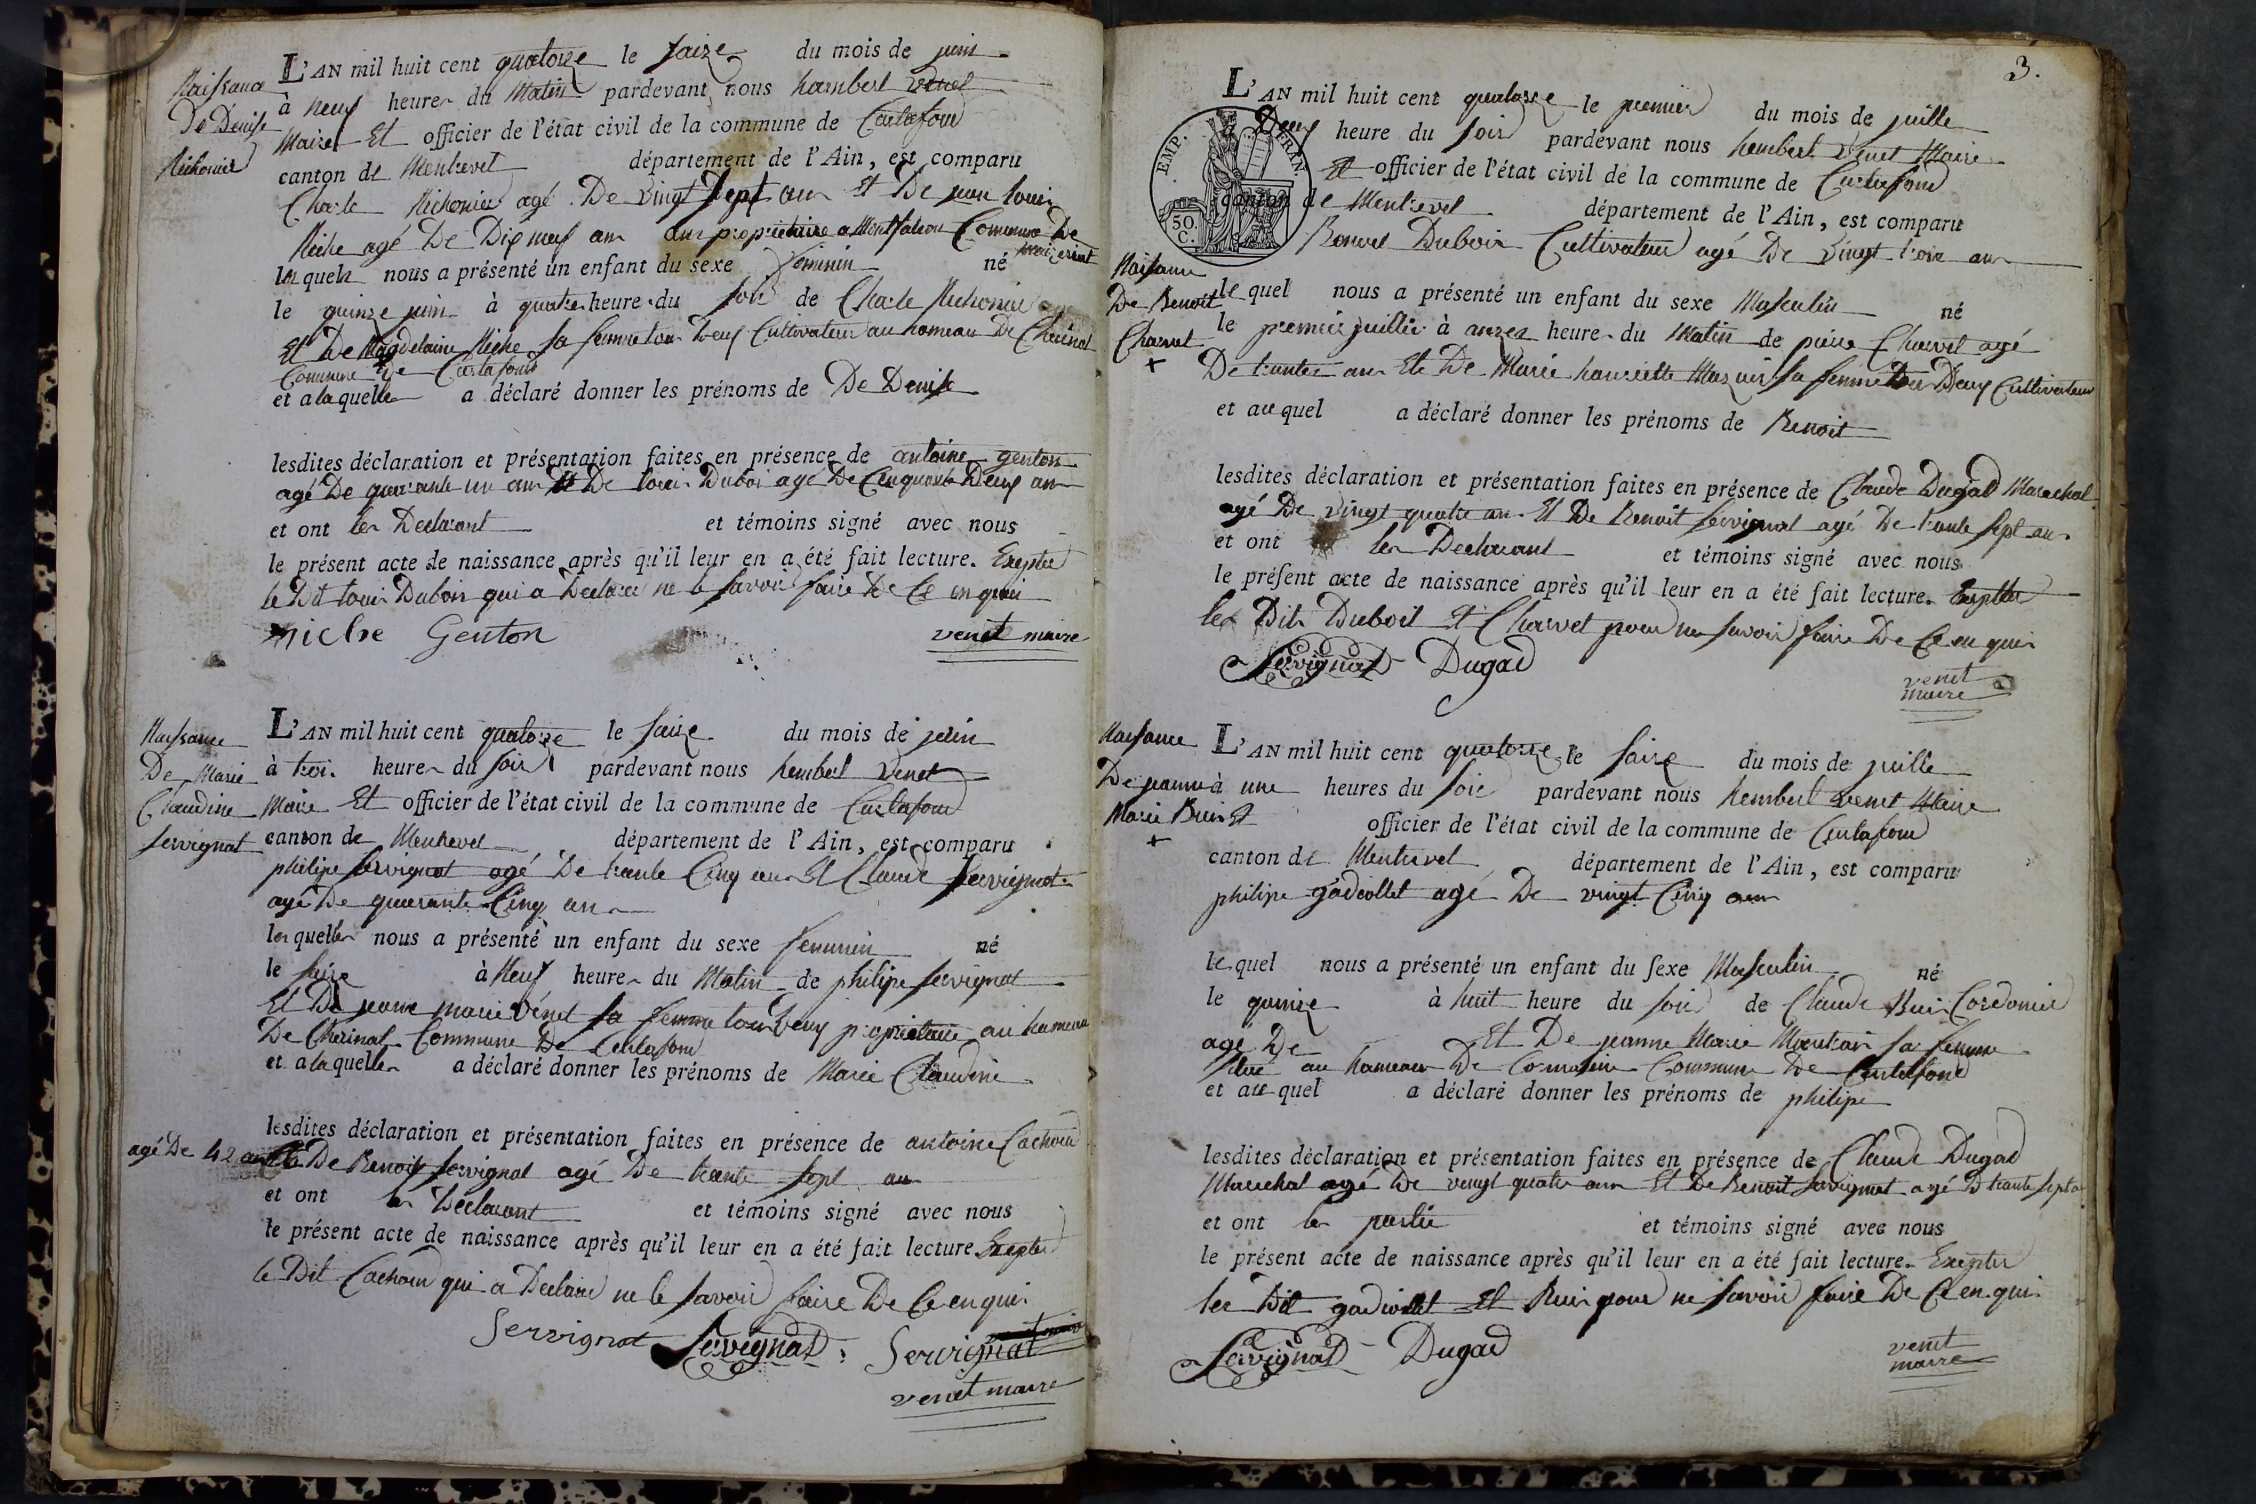 Naissance
De Denise
Michonier
L'AN mil huit cent quatorze le saize du mois de juin
à neuf heures du Matin pardevant nous hambert venet
Maire Et officier de l'état civil de la commune de Curtafond
canton de Montrevel département de l'Ain, est comparu
Charle Michonier agé De vingt sept ans Et De jean louis
Miche agé De Dix neuf ans propriétaire a Montfalcon Commune De
les quels nous a présenté un enfant du sexe feminin né
le quinze juin à quatre heures du soir de Charle Michonier
Et De Magdelaine Miche sa femme tous Deux Cultivateur au hameau De Cherinal
Commune de Curtafond
et a laquelle a déclaré donner les prénoms de De Denise
lesdites déclaration et présentation faites en présence de antoine genton
agé De quarante un ans Et De louis Duboi agé De Cinquante Deux ans
et ont les Declarant et témoins signé avec nous
le présent acte de naissance après qu'il leur en a été fait lecture. Exepter
le Dit louis Dubois qui a Declarer ne le savoir faire De Ce en quis
miche Genton venet maire
Naissance
De Marie
Claudine
servignat
L'AN mil huit cent quatorze le saize du mois de juin
à trois heures du soir pardevant nous hembert venet
Maire Et officier de l'état civil de la commune de Curtafond
canton de Montrevel département de l'Ain, est comparu
philipe servignat agé De trante Cinq ans Et Claude servignat
agé De quarante Cinq ans
les quelles nous a présenté un enfant du sexe feminin né
le saize à Neuf heures du Matin de philipe servignat
Et De jeanne marie vénet sa femme tous Deux propriétaire au hameau
De Cherinal Commune De Curtafond
et a laquelle a déclaré donner les prénoms de Marie Claudine
lesdites déclaration et présentation faites en présence de antoine Cachoud
agé De 42 ans Et De Benoit servignat agé De trante sept ans
et ont les Declarant et témoins signé avec nous
le présent acte de naissance après qu'il leur en a été fait lecture. Exepter
le Dit Cachoud qui a Declaré ne le savoir faire De Ce en quis
Servignat Servignat Servignat
venet maire
3.
EMP. FRAN.
50. C.
L'AN mil huit cent quatorze le premier du mois de juille
Deux heure du soir pardevant nous hembert venet Maire
Et officier de l'état civil de la commune de Curtafond
canton de Montrevel département de l'Ain, est comparu
Benoit Dubois Cultivateur agé De vingt trois ans
Naissance
De Benoit
Charvet
+
le quel nous a présenté un enfant du sexe Masculin né
le premier juillier à onzes heure du Matin de pierre Charvet agé
De trante ans Et De Marie henriette Mazuir sa femme tous Deux Cultivateur
et au quel a déclaré donner les prénoms de Benoit
lesdites déclaration et présentation faites en présence de Claude Dugad Marechal
agé De vingt quatre ans Et De Benoit servignat agé De trante sept ans
et ont les Declarant et témoins signé avec nous
le présent acte de naissance après qu'il leur en a été fait lecture. Exepter
les Dits Duboit Et Charvet pour ne savoir faire De Ce en quis
Servignat Dugad
venet
maire
Naissance
De jeanne
Marie Buis
+
L'AN mil huit cent quatorze le saize du mois de juille
à une heures du soir pardevant nous hembert venet Maire
Et officier de l'état civil de la commune de Curtafond
canton de Montrevel département de l'Ain, est comparu
philipe gadiollet agé De vingt Cinq ans
le quel nous a présenté un enfant du sexe Masculin né
le quinze à huit heure du soir de Claude Buis Cordonier
agé De Et De jeanne Marie sa femme
au hameau De Commune De Curtafond
et au quel a déclaré donner les prénoms de philipe
lesdites déclaration et présentation faites en présence de Claude Dugad
Marechal agé De vingt quatre ans Et De Benoit servignat agé D trante sept ans
et ont les partie et témoins signé avec nous
le présent acte de naissance après qu'il leur en a été fait lecture. Exepter
les Dit gadiollet Et Buis pour ne savoir faire De Ce en quis
Servignat Dugad
venet
maire